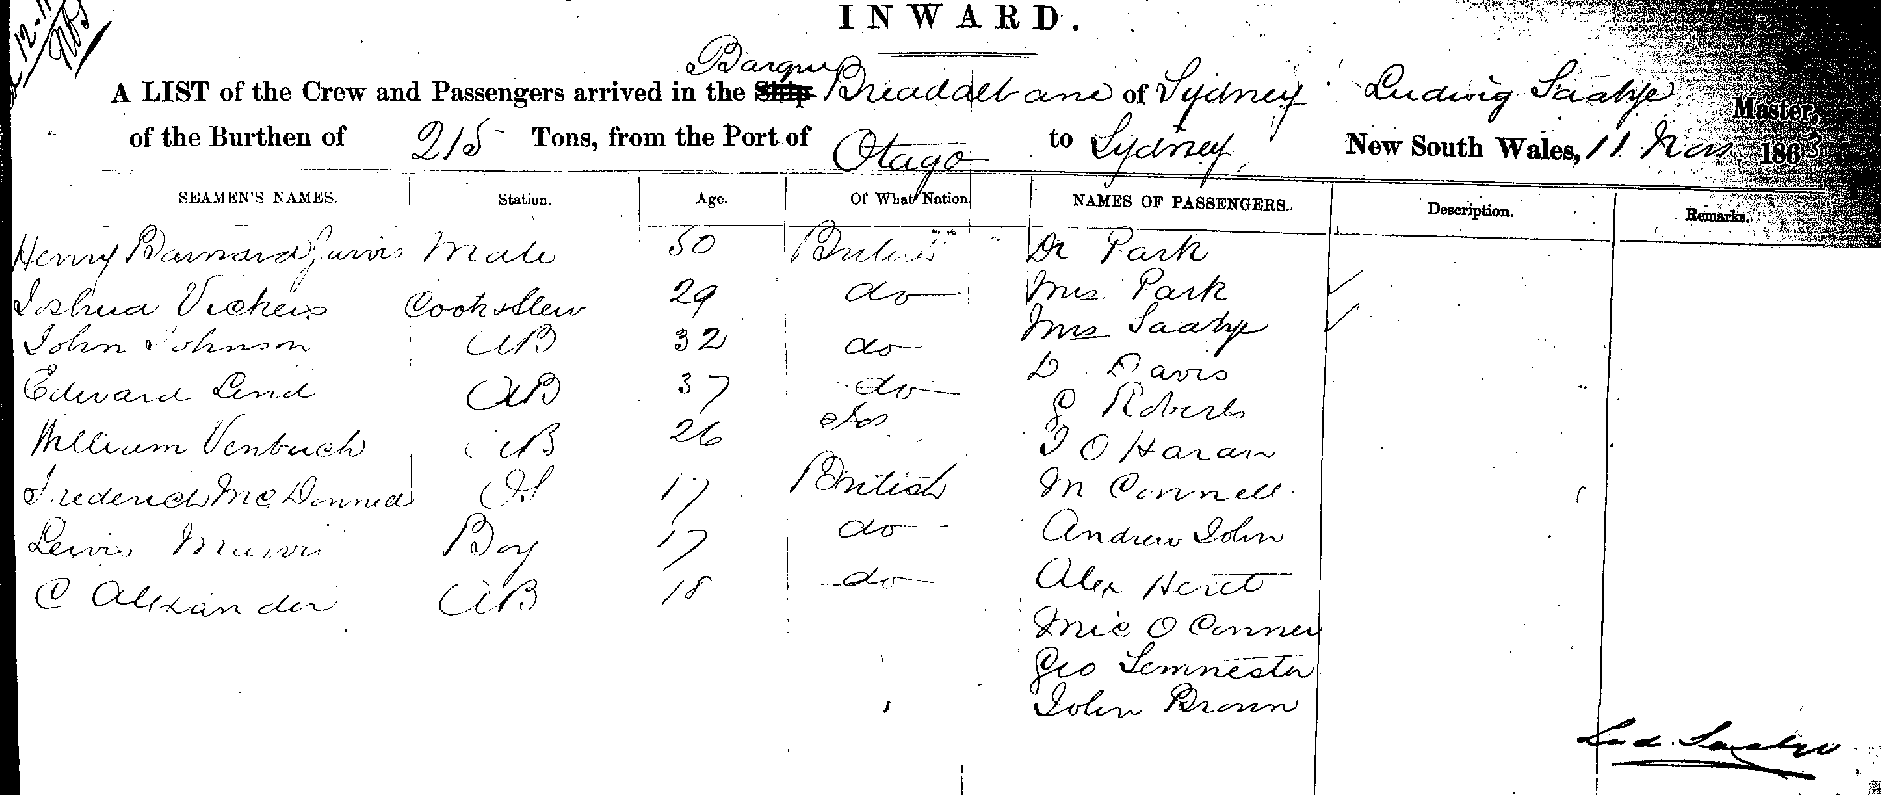 INWARD.
A LIST of the Crew and Passengers arrived in the Ship Barque Breadalbane of Sydney Ludwig Master,
of the Burthen of 215 Tons, from the Port of Otago to Sydney, New South Wales, 11 Nov 186
SEAMEN'S NAMES. Station. Age. Of What Nation NAMES OF PASSENGERS. Description. Remarks.
Henry Barnard Jarvis Mate 50 British Dr Park
Joshua Vickers Cook & Stew 29 do Mrs Park ✓
John Johnson AB 32 do Mrs ✓
Edward Lind AB 37 do D Davis
William AB 26 do G Roberts
Frederick McDonned OS 17 British J O Haran
Lewis Boy 17 do M Connell
C Alexander AB 18 do Andrew John
Alex
Mic O Conner
Geo
John Brown